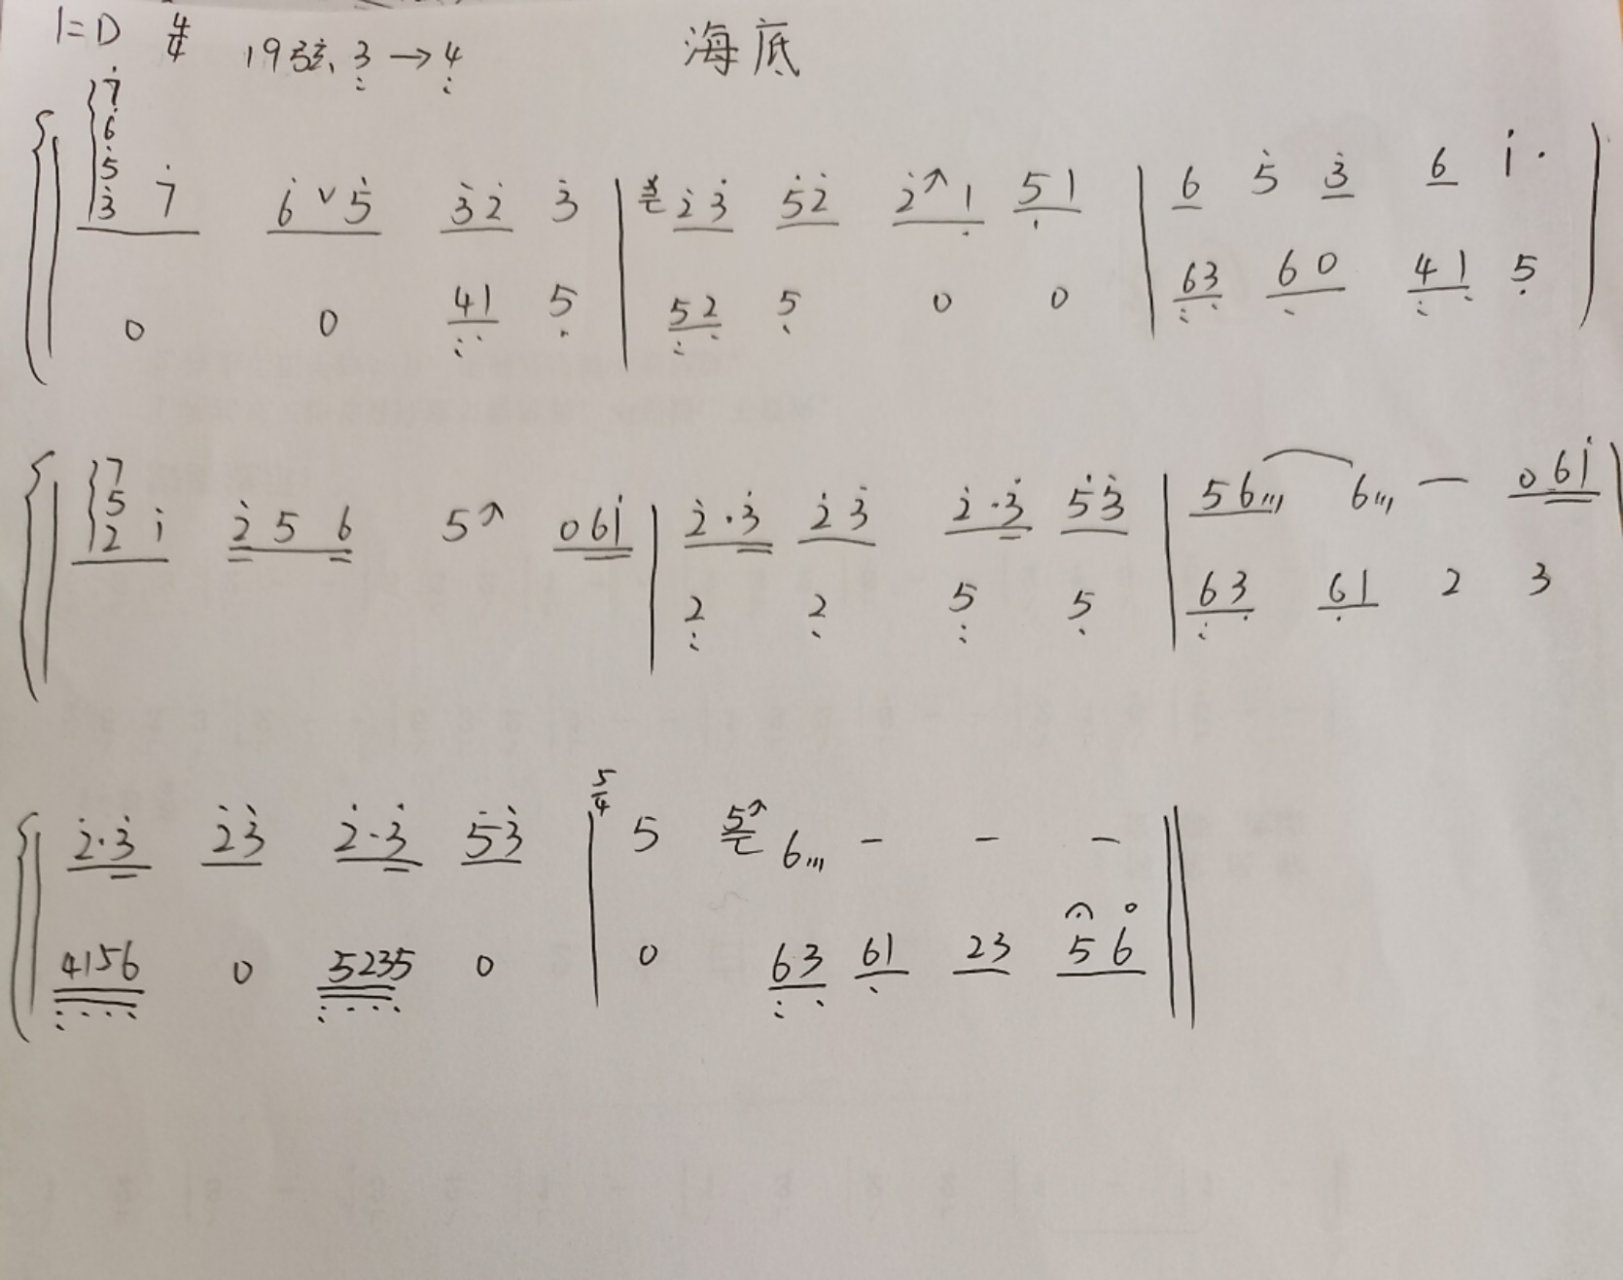 1=D 4/4 19弦、3̣̣→4̣̣ 海底
{7̇ 6̇ 5̇ 3̇} 7̇ 6̇ ∨ 5̇ 3̇ 2̇ 3̇ | 2̇ 3̇ 5̇ 2̇ 2̇↗ 1 5 1 | 6 5̇ 3̇ 6 1̇ · |
0 0 4̣̣ 1̣̣ 5̣ | 5̣̣ 2̣ 5̣ 0 0 | 6̣̣ 3̣ 6̣ 0 4̣̣ 1̣ 5̣ |
{7 5 2} 1̇ 2̇ 5 6 5↗ 0 6 1̇ | 2̇ · 3̇ 2̇ 3̇ 2̇ · 3̇ 5̇ 3̇ | 5 6,,, 6,,, — 0 6 1̇ |
2̣̣ 2̣ 5̣̣ 5̣ | 6̣̣ 3̣ 6̣ 1 2 3
2̇ · 3̇ 2̇ 3̇ 2̇ · 3̇ 5̇ 3̇ | 5/4 5 5↗ 6,,, - - - ||
4̣̣ 1̣̣ 5̣̣ 6̣̣ 0 5̣̣ 2̣ 3̣ 5̣ 0 | 0 6̣̣ 3̣ 6̣ 1 2 3 5 6 ||